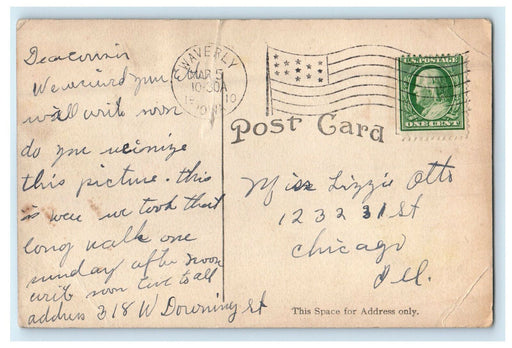 Dear cousin
We recieved your
will write soon
do you reconize
this picture. this
is were we took that
long walk one
sunday after noon
write soon love to all
address 318 W Downing St
WAVERLY
MAR 5
10-30A
1910
U.S. POSTAGE
ONE CENT
Post Card
Miss Lizzie Otto
1232 31 St
Chicago
Ill.
This Space for Address only.